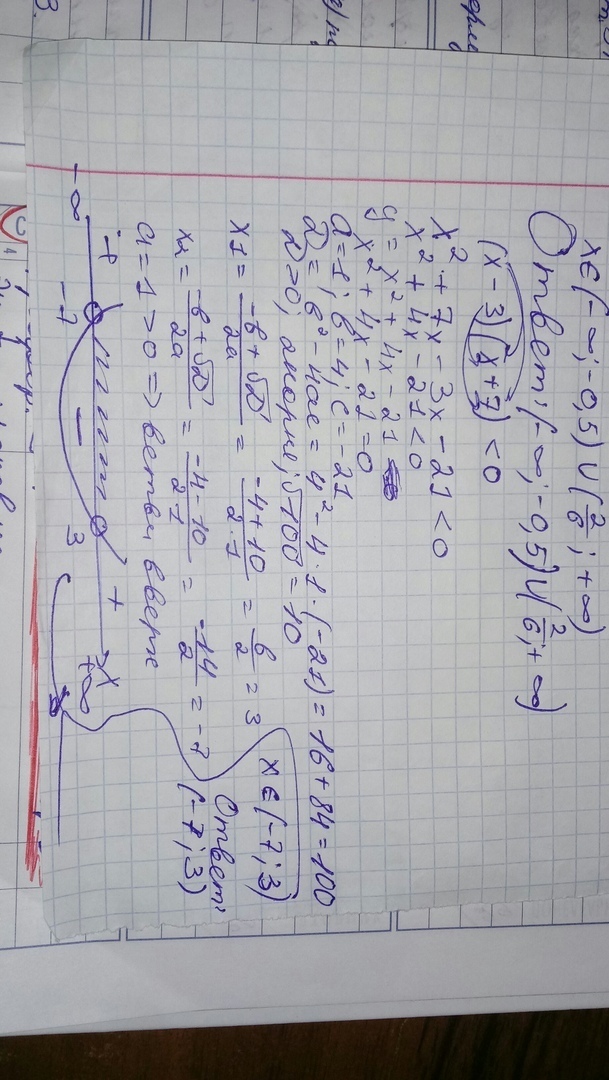 x∈(-∞; -0,5) ∪ (2/6; +∞)
Ответ: (-∞; -0,5) ∪ (2/6; +∞)
(x - 3)(x + 7) < 0
x² + 7x - 3x - 21 < 0
x² + 4x - 21 < 0
y = x² + 4x - 21
x² + 4x - 21 = 0
a = 1; b = 4; c = -21
D = b² - 4ac = 4² - 4·1·(-21) = 16 + 84 = 100
D > 0, √100 = 10
x1 = -b + √D / 2a = -4 + 10 / 2·1 = 6/2 = 3
x∈(-7; 3)
x2 = -b + √D / 2a = -4 - 10 / 2·1 = -14/2 = -7
Ответ:
(-7; 3)
a = 1 > 0 => ветви вверх
+ - + x
-∞ -7 3 +∞